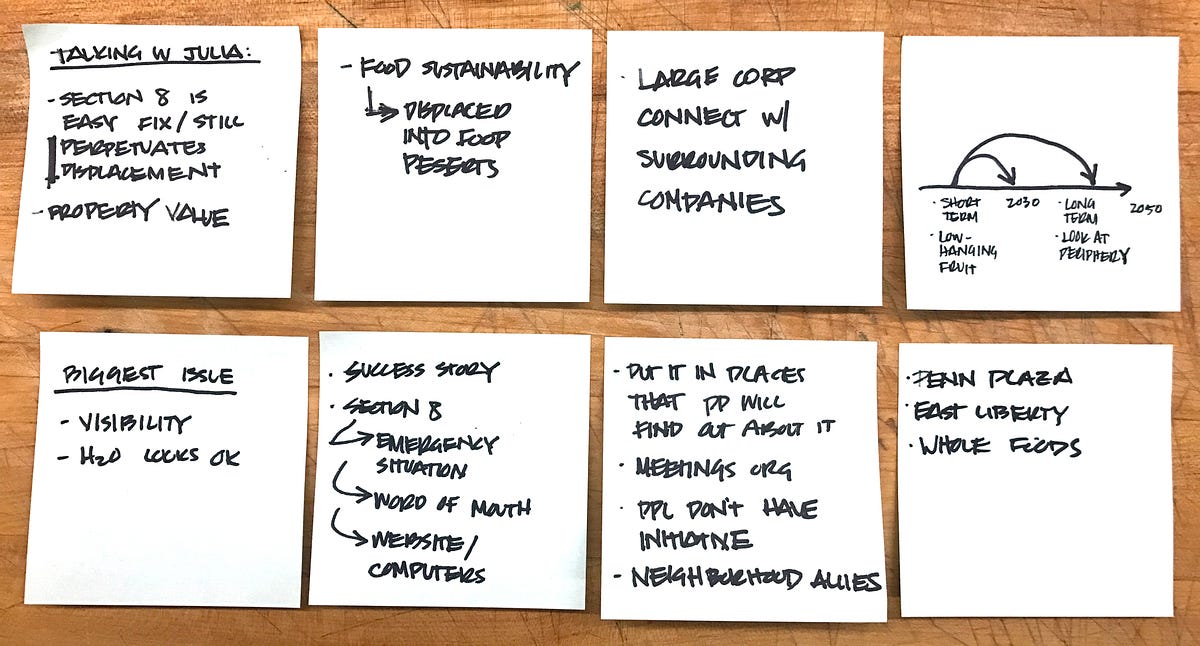 TALKING W JULIA:
- SECTION 8 IS
EASY FIX / STILL
PERPETUATES
DISPLACEMENT
- PROPERTY VALUE
- FOOD SUSTAINABILITY
DISPLACED
INTO FOOD
DESERTS
· LARGE CORP
CONNECT W/
SURROUNDING
COMPANIES
· SHORT
TERM
2030
· LONG
TERM
2050
· LOW-
HANGING
FRUIT
· LOOK AT
PERIPHERY
BIGGEST ISSUE
- VISIBILITY
- H2O LOOKS OK
· SUCCESS STORY
· SECTION 8
EMERGENCY
SITUATION
WORD OF MOUTH
WEBSITE /
COMPUTERS
· PUT IT IN PLACES
THAT PP WILL
FIND OUT ABOUT IT
· MEETINGS ORG
· PPL DON'T HAVE
INITIATIVE
- NEIGHBORHOOD ALLIES
· PENN PLAZA
· EAST LIBERTY
· WHOLE FOODS